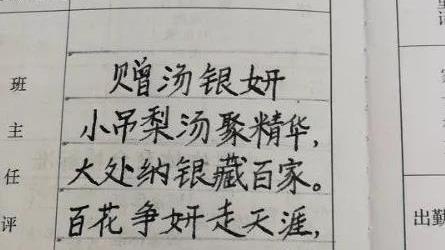 赠汤银妍
小吊梨汤聚精华，
大处纳银藏百家。
百花争妍走天涯，
班主任评
出勤